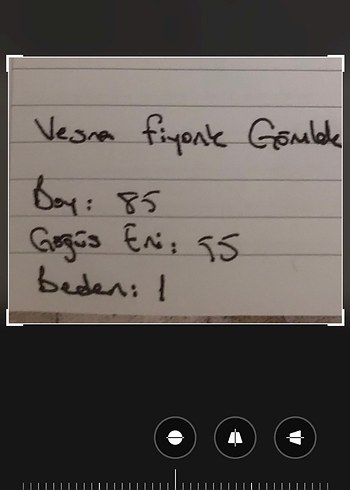 Vesna fiyonk Gömlek
Boy: 85
Göğüs Eni: 55
Beden: 1